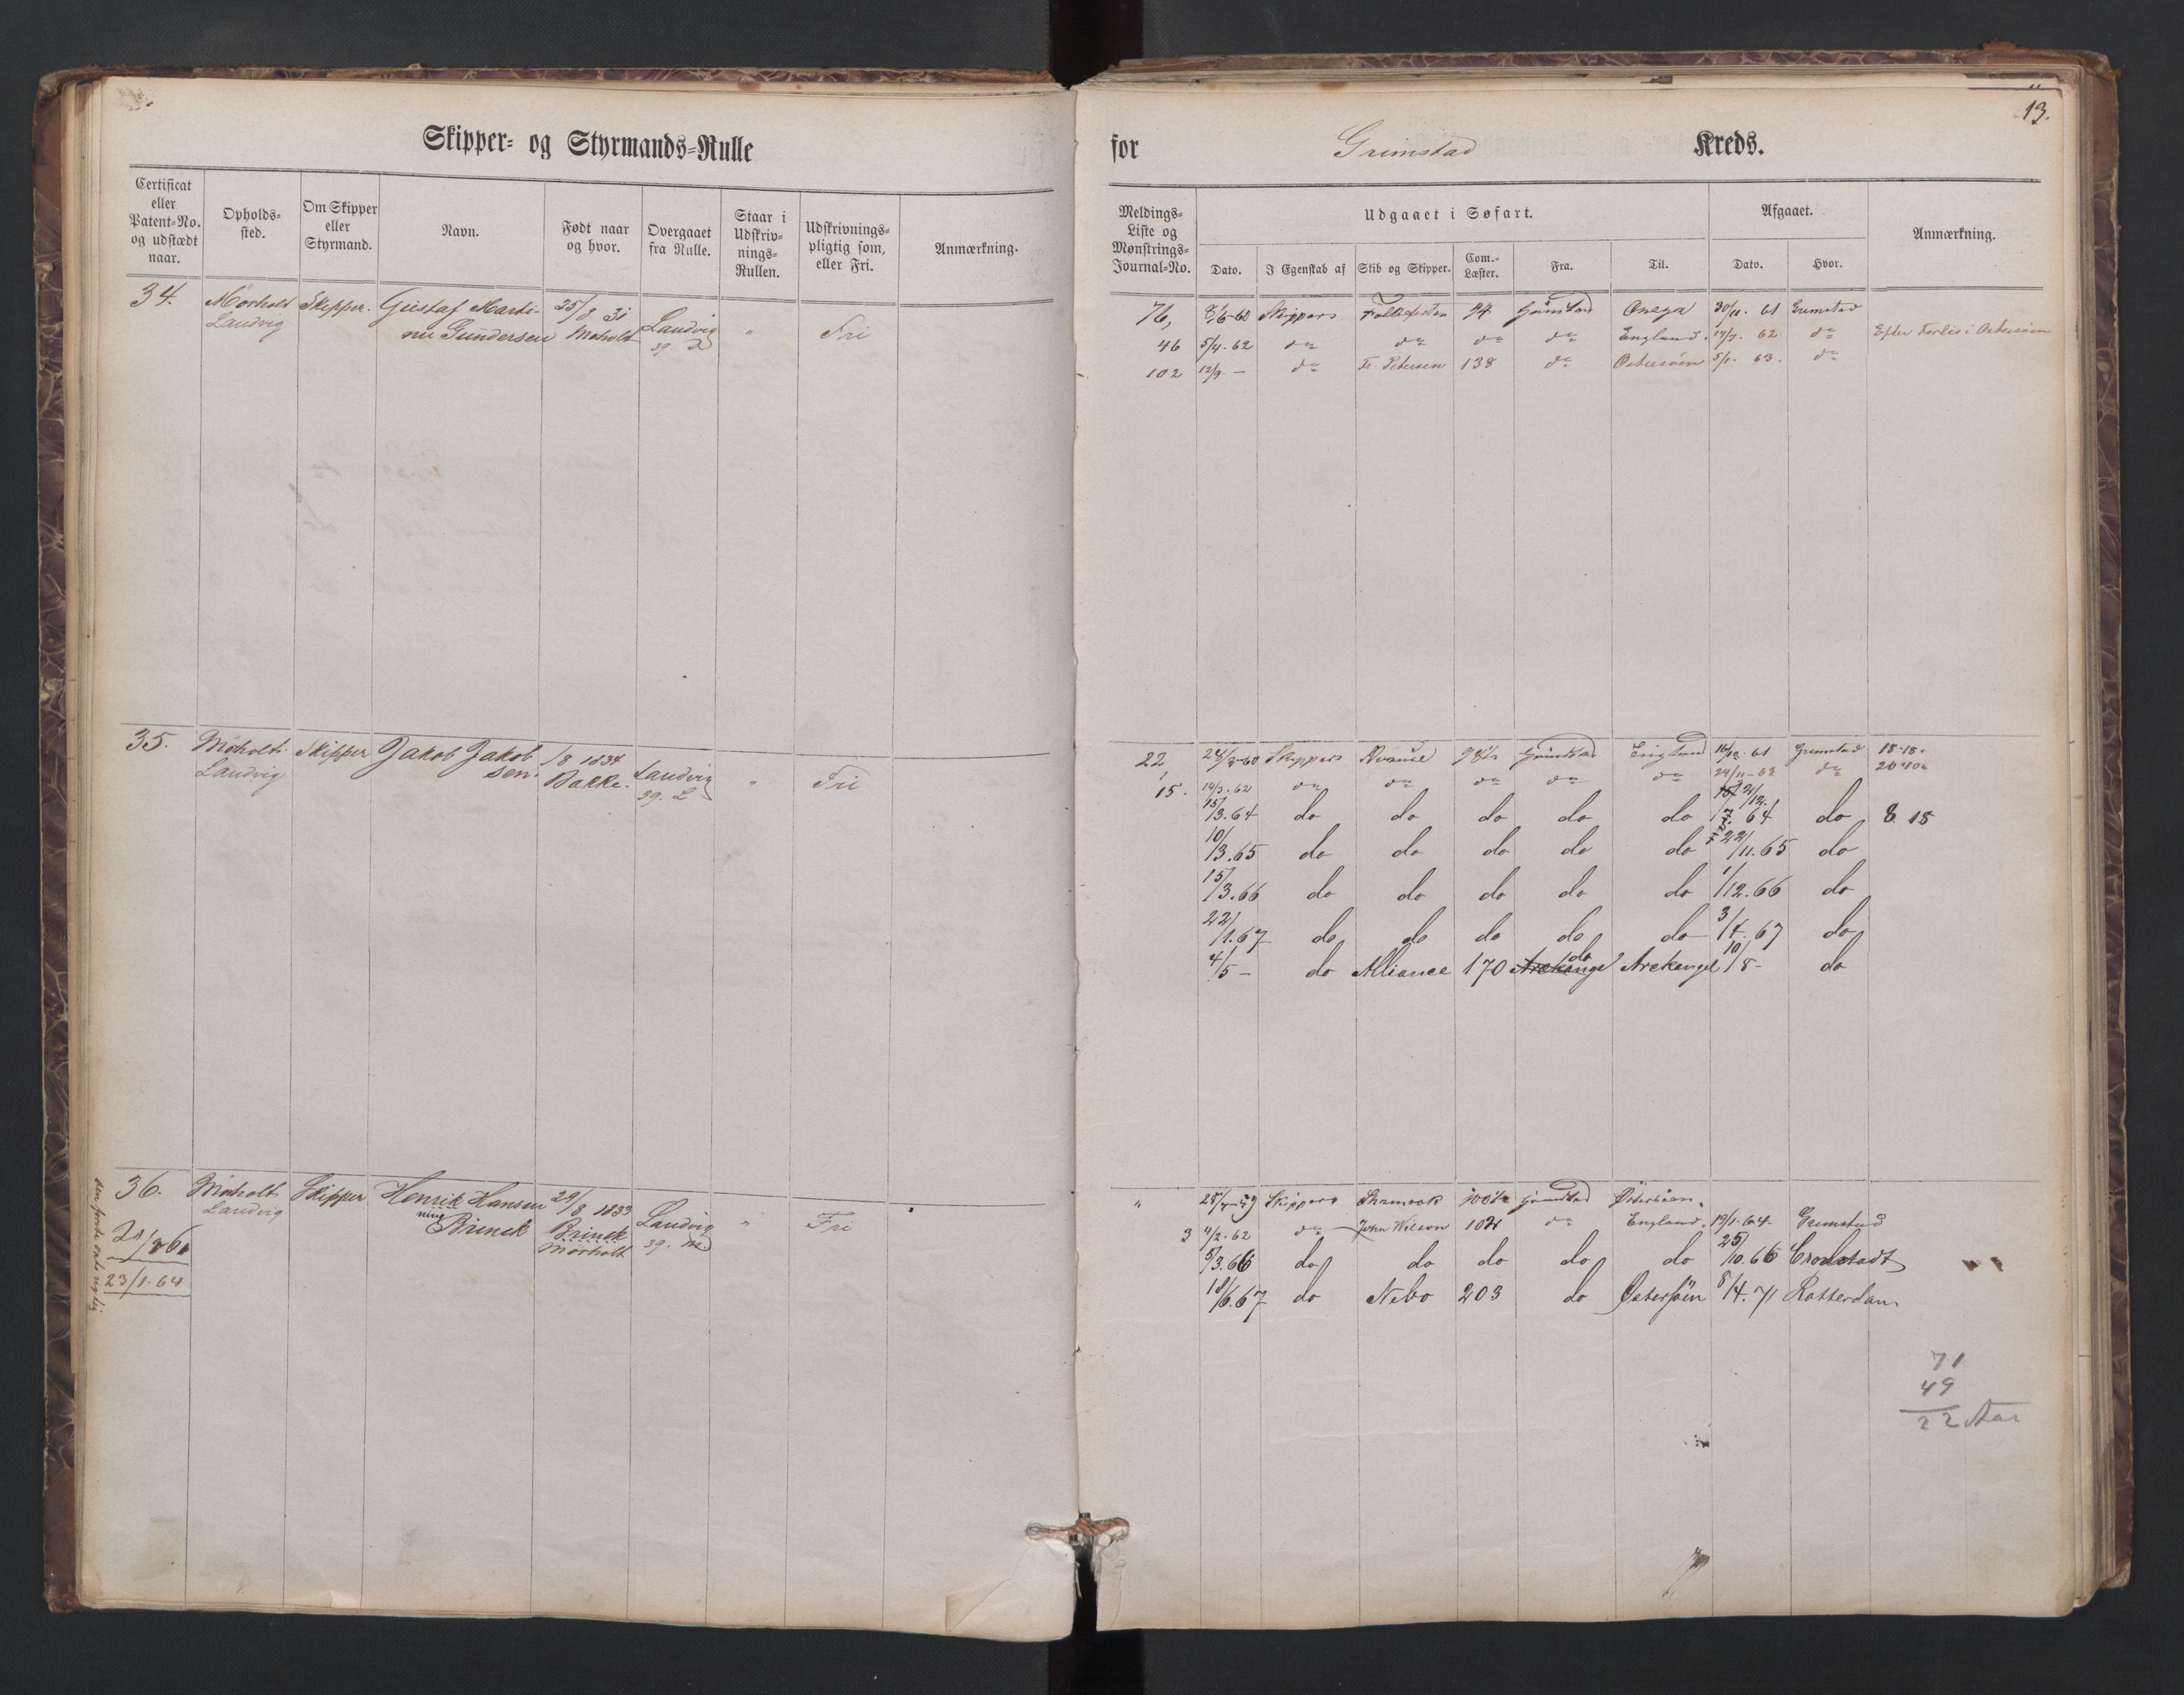 13.
Skipper- og Styrmands-Rulle for Grimstad Kreds.
Certificat eller Patent-No. og udstædt naar.
Opholds-sted.
Om Skipper eller Styrmand.
Navn.
Født naar og hvor.
Overgaaet fra Rulle.
Staar i Udskriv-nings-Rullen.
Udskrivnings-pligtig som, eller Fri.
Anmærkning.
Meldings-Liste og Mønstrings-Journal-No.
Udgaaet i Søfart.
Dato.
I Egenskab af
Skib og Skipper.
Com.-Læster.
Fra.
Til.
Afgaaet.
Dato.
Hvor.
Anmærkning.
34. Morholt Skipper. Gustaf Marti- 25/8 31 Landvig " Fri
Landvig nu Gundersen Moholt 39.
76, 8/6-60 Skippers 94 Grimstad Onega 30/11. 61 Grimstad
46 5/4. 62 do do do do England. 14/9. 62 do Efter Forlis i Østersøen
102 12/9 - do Fr. Petersen 138 do Østersøen 5/1. 63. do
35. Moholt Skipper Jakob Jakob /8 1834 Landvig " Fri
Landvig sen. Bakke. 39. L
22, 24/3-60 Skippers 98½ Grimstad England 16/12. 61 Grimstad 18.18.
15. 14/3. 62 do do do do do 24/11-62 do
15/3. 64 do do do do do 64 do 8. 18
10/3. 65 do do do do do 22/11. 65 do
15/3. 66 do do do do do 1/12. 66 do
22/1. 67 do do do do do 3/4. 67 do
4/5 - do Alliance 170 Arckangel do Arckangel 10/8 - do
36. Moholt Skipper Henrik Hansen 29/8 1833 Landvig " Fri
Landvig ning Brinck Brinck Morholt 39.
23/1. 64
" 25/4-59 Skippers Shamrock 100½ Grimstad Østersøen.
3 4/2. 62 do John Wilson 102 do England. 19/1. 64. Grimstad
5/3. 66 do do do do do 25/10. 66 Cronstadt
18/6. 67 do Nebo 203 do Østersøen 8/4. 71 Rotterdam
71
49
22 Aar